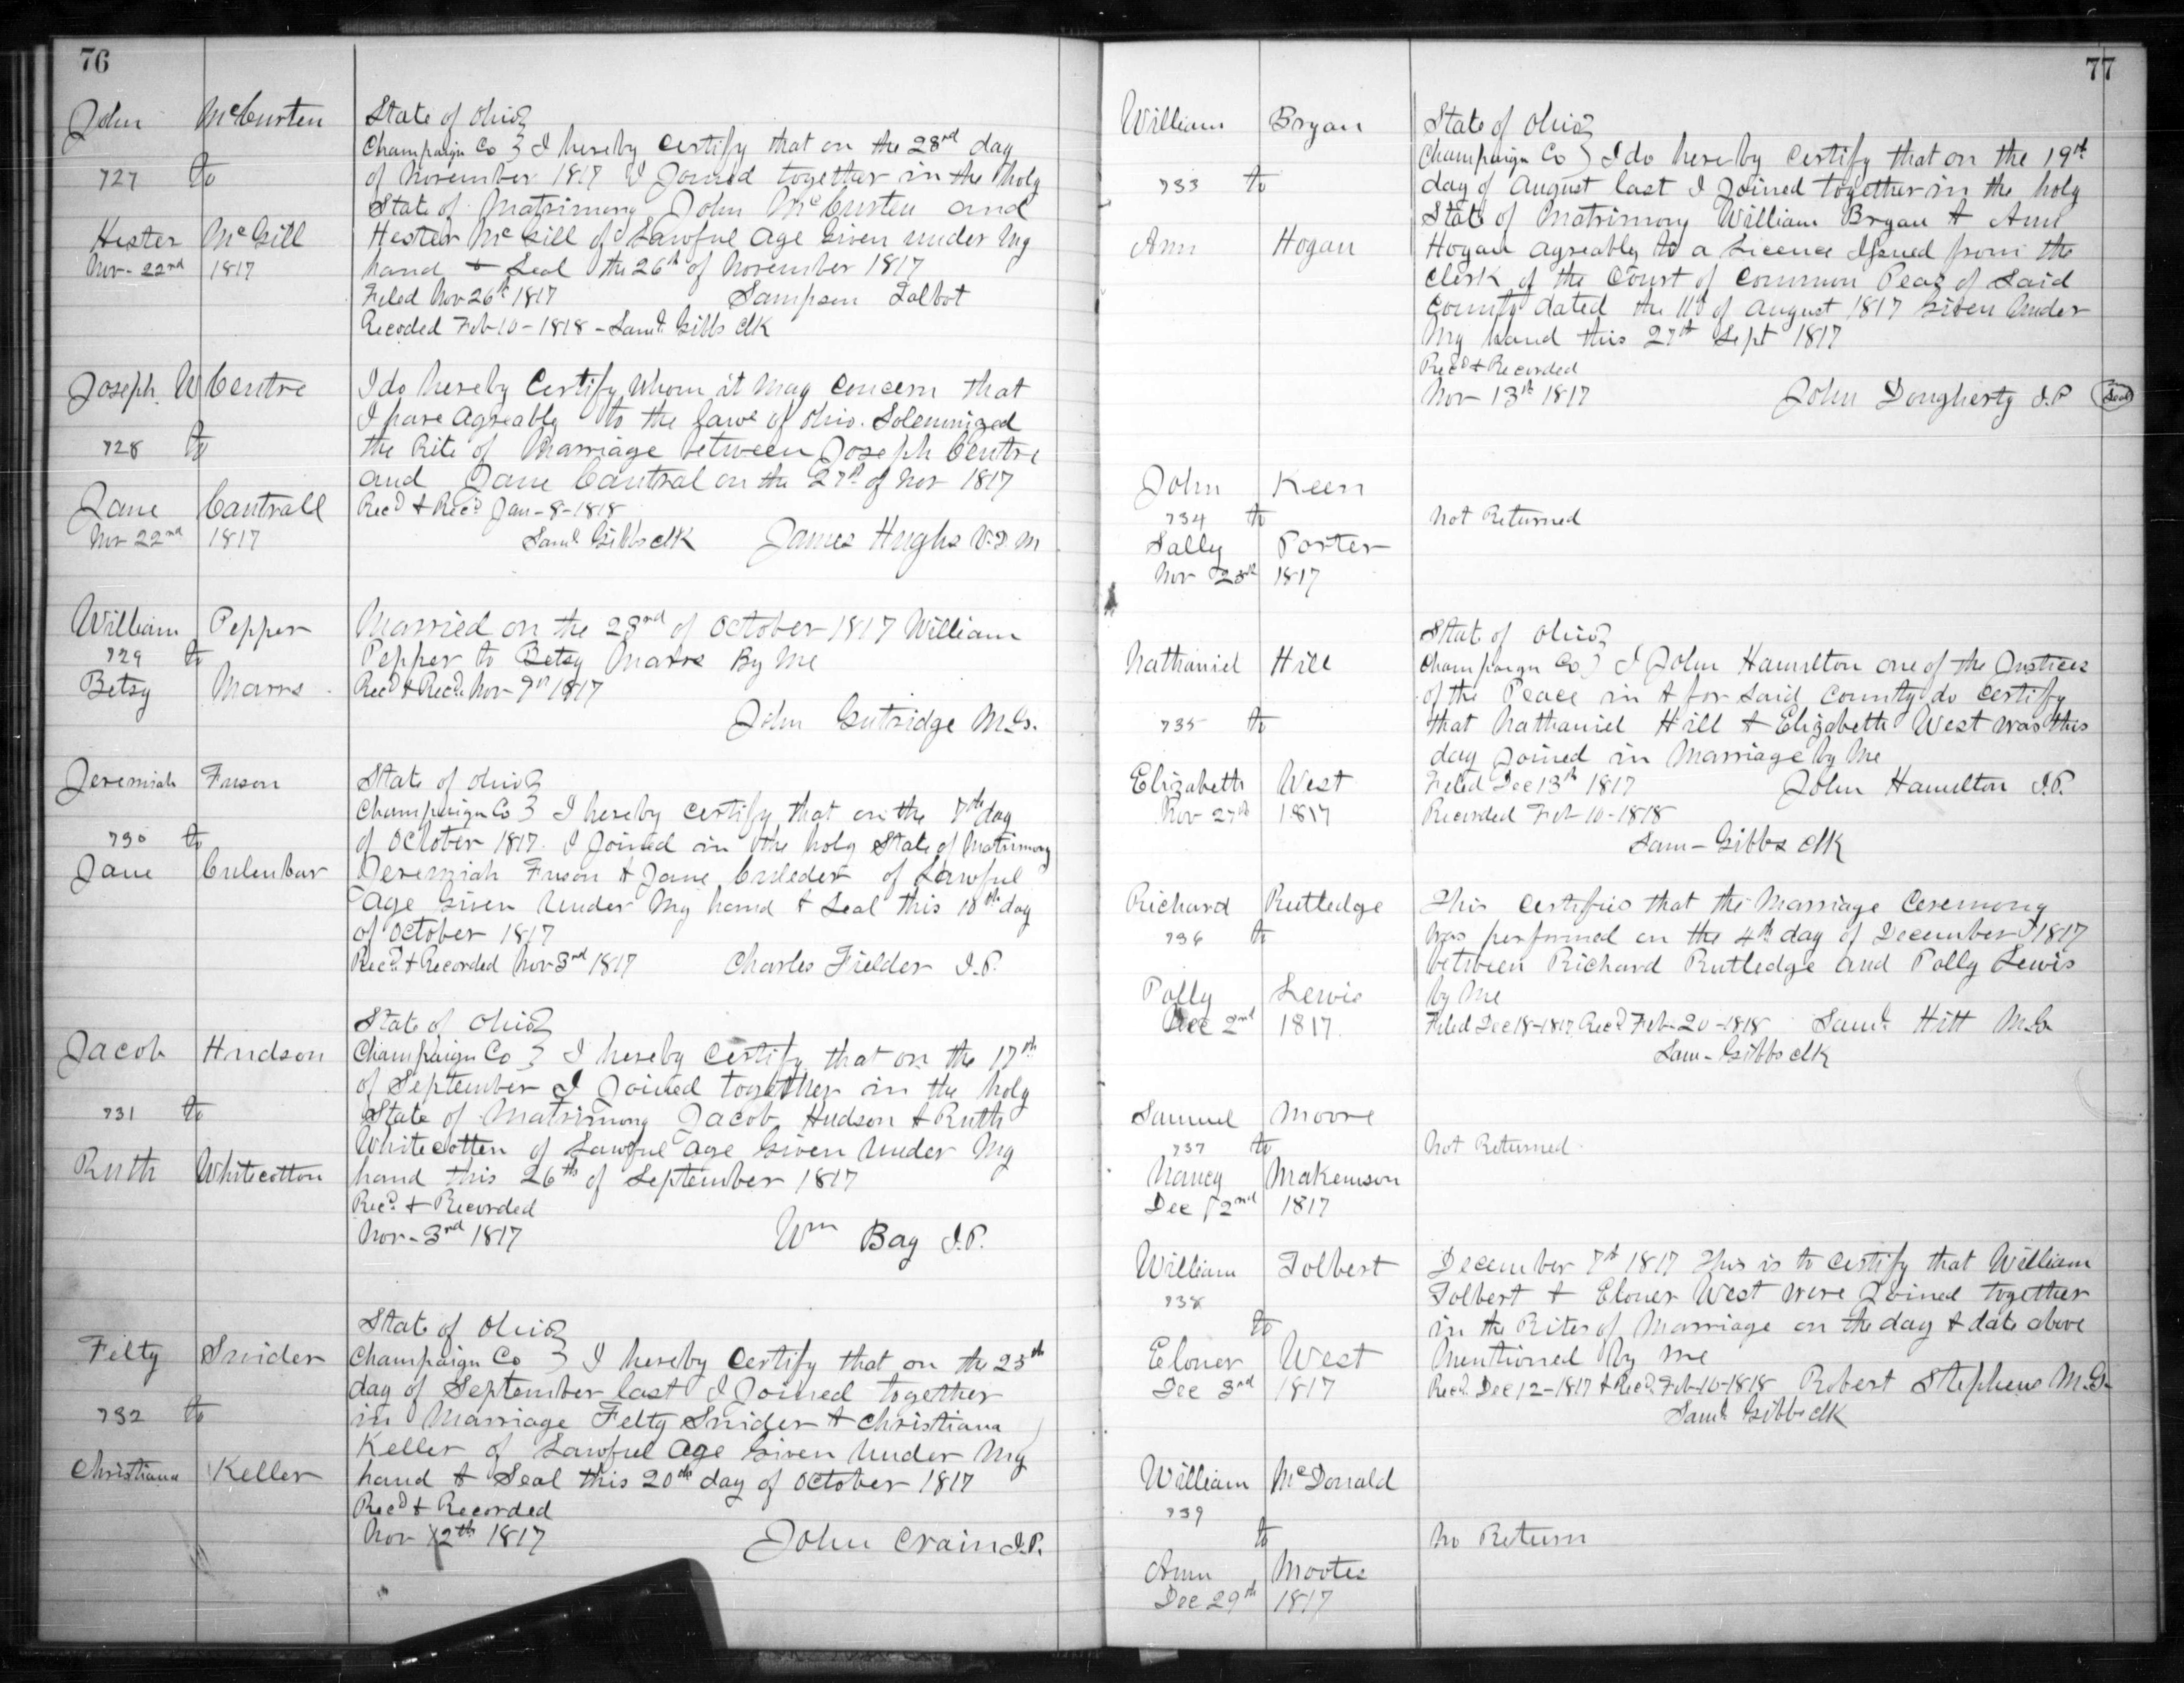 76
John McCursten
727 to
Hester McGill
Nov- 22nd 1817
State of Ohio
Champaign Co } I hereby certify that on the 23rd day
of November 1817 I Joined together in the holy
State of Matrimony John McCursten and
Hester McGill of Lawful Age Given under My
hand & Seal the 26th of November 1817
Filed Nov 26th 1817 Sampson Talbot
Recoded Feb-10-1818-Saml Gibbs Clk
Joseph W Centre
728 to
Jane Cantrall
Nov 22nd 1817
I do hereby Certify Whom it May Concern that
I have Agreeably to the Laws of Ohio. Solemnized
the Rite of Marriage between Joseph Centre
and Jane Cantral on the 27th of Nov 1817
Recd & Recd Jan-8-1818
Saml Gibbs Clk James Hughs V.D.M
William Pepper
729 to
Betsy Marrs
Married on the 23rd of October 1817 William
Pepper to Betsy Marrs By Me
Recd & Recd Nov-7th 1817
John Gutridge M.G.
Jeremiah Fuson
730 to
Jane Culenbar
State of Ohio
Champaign Co } I hereby certify that on the 7th day
of October 1817. I Joined in the holy State of Matrimony
Jeremiah Fuson & Jane Culeder of Lawful
Age Given Under My hand & Seal this 10th day
of October 1817
Recd & Recorded Nov 3rd 1817 Charles Fielder J.P.
Jacob Hudson
731 to
Ruth Whitecotton
State of Ohio
Champaign Co } I hereby certify that on the 17th
of September I Joined together in the holy
State of Matrimony Jacob Hudson & Ruth
Whitecotten of Lawful Age Given Under My
hand this 26th of September 1817
Recd & Recorded
Nov-3rd 1817 Wm Bay J.P.
Felty Snider
732 to
Christiana Keller
State of Ohio
Champaign Co } I hereby Certify that on the 25th
day of September last I Joined together
in Marriage Felty Snider & Christiana
Keller of Lawful Age Given Under My
hand & Seal this 20th day of October 1817
Recd & Recorded
Nov 12th 1817 John Crain J.P.
77
William Bryan
733 to
Ann Hogan
State of Ohio
Champaign Co } I do hereby Certify that on the 19th
day of August last I Joined together in the holy
State of Matrimony William Bryan & Ann
Hogan Agreeably to a Licence Issued from the
Clerk of the Court of Common Peas of Said
County dated the 11th of August 1817 Given Under
My hand this 27th Sept 1817
Recd & Recorded
Nov 13th 1817 John Dougherty J.P. Seal
John Keen
734 to
Sally Porter
Nov 25th 1817
Not Returned
Nathaniel Hill
735 to
Elizabeth West
Nov 27th 1817
State of Ohio
Champaign Co } I John Hamilton one of the Justices
of the Peace in & for Said County do certify
that Nathaniel Hill & Elizabeth West was this
day Joined in Marriage by Me
Filed Dec 13th 1817 John Hamilton J.P.
Recorded Feb-10-1818
Sam-Gibbs Clk
Richard Rutledge
736 to
Polly Lewis
Dec 2nd 1817.
This Certifies that the Marriage Ceremony
was performed on the 4th day of December 1817
between Richard Rutledge and Polly Lewis
by Me
Filed Dec 18-1817 Recd Feb-20-1818 Saml Hitt M.G.
Sam-Gibbs Clk
Samuel Moore
737 to
Nancy Makemson
Dec 2nd 1817
Not Returned
William Tolbert
738
to
Eloner West
Dec 3rd 1817
December 7th 1817 This is to Certify that William
Tolbert & Eloner West were Joined together
in the Rites of Marriage on the day & date above
Mentioned by me
Recd Dec 12-1817 & Recd Feb-10-1818 Robert Stephens M.G.
Saml Gibbs Clk
William McDonald
739
to
Ann Mootes
Dec 29th 1817
No Return